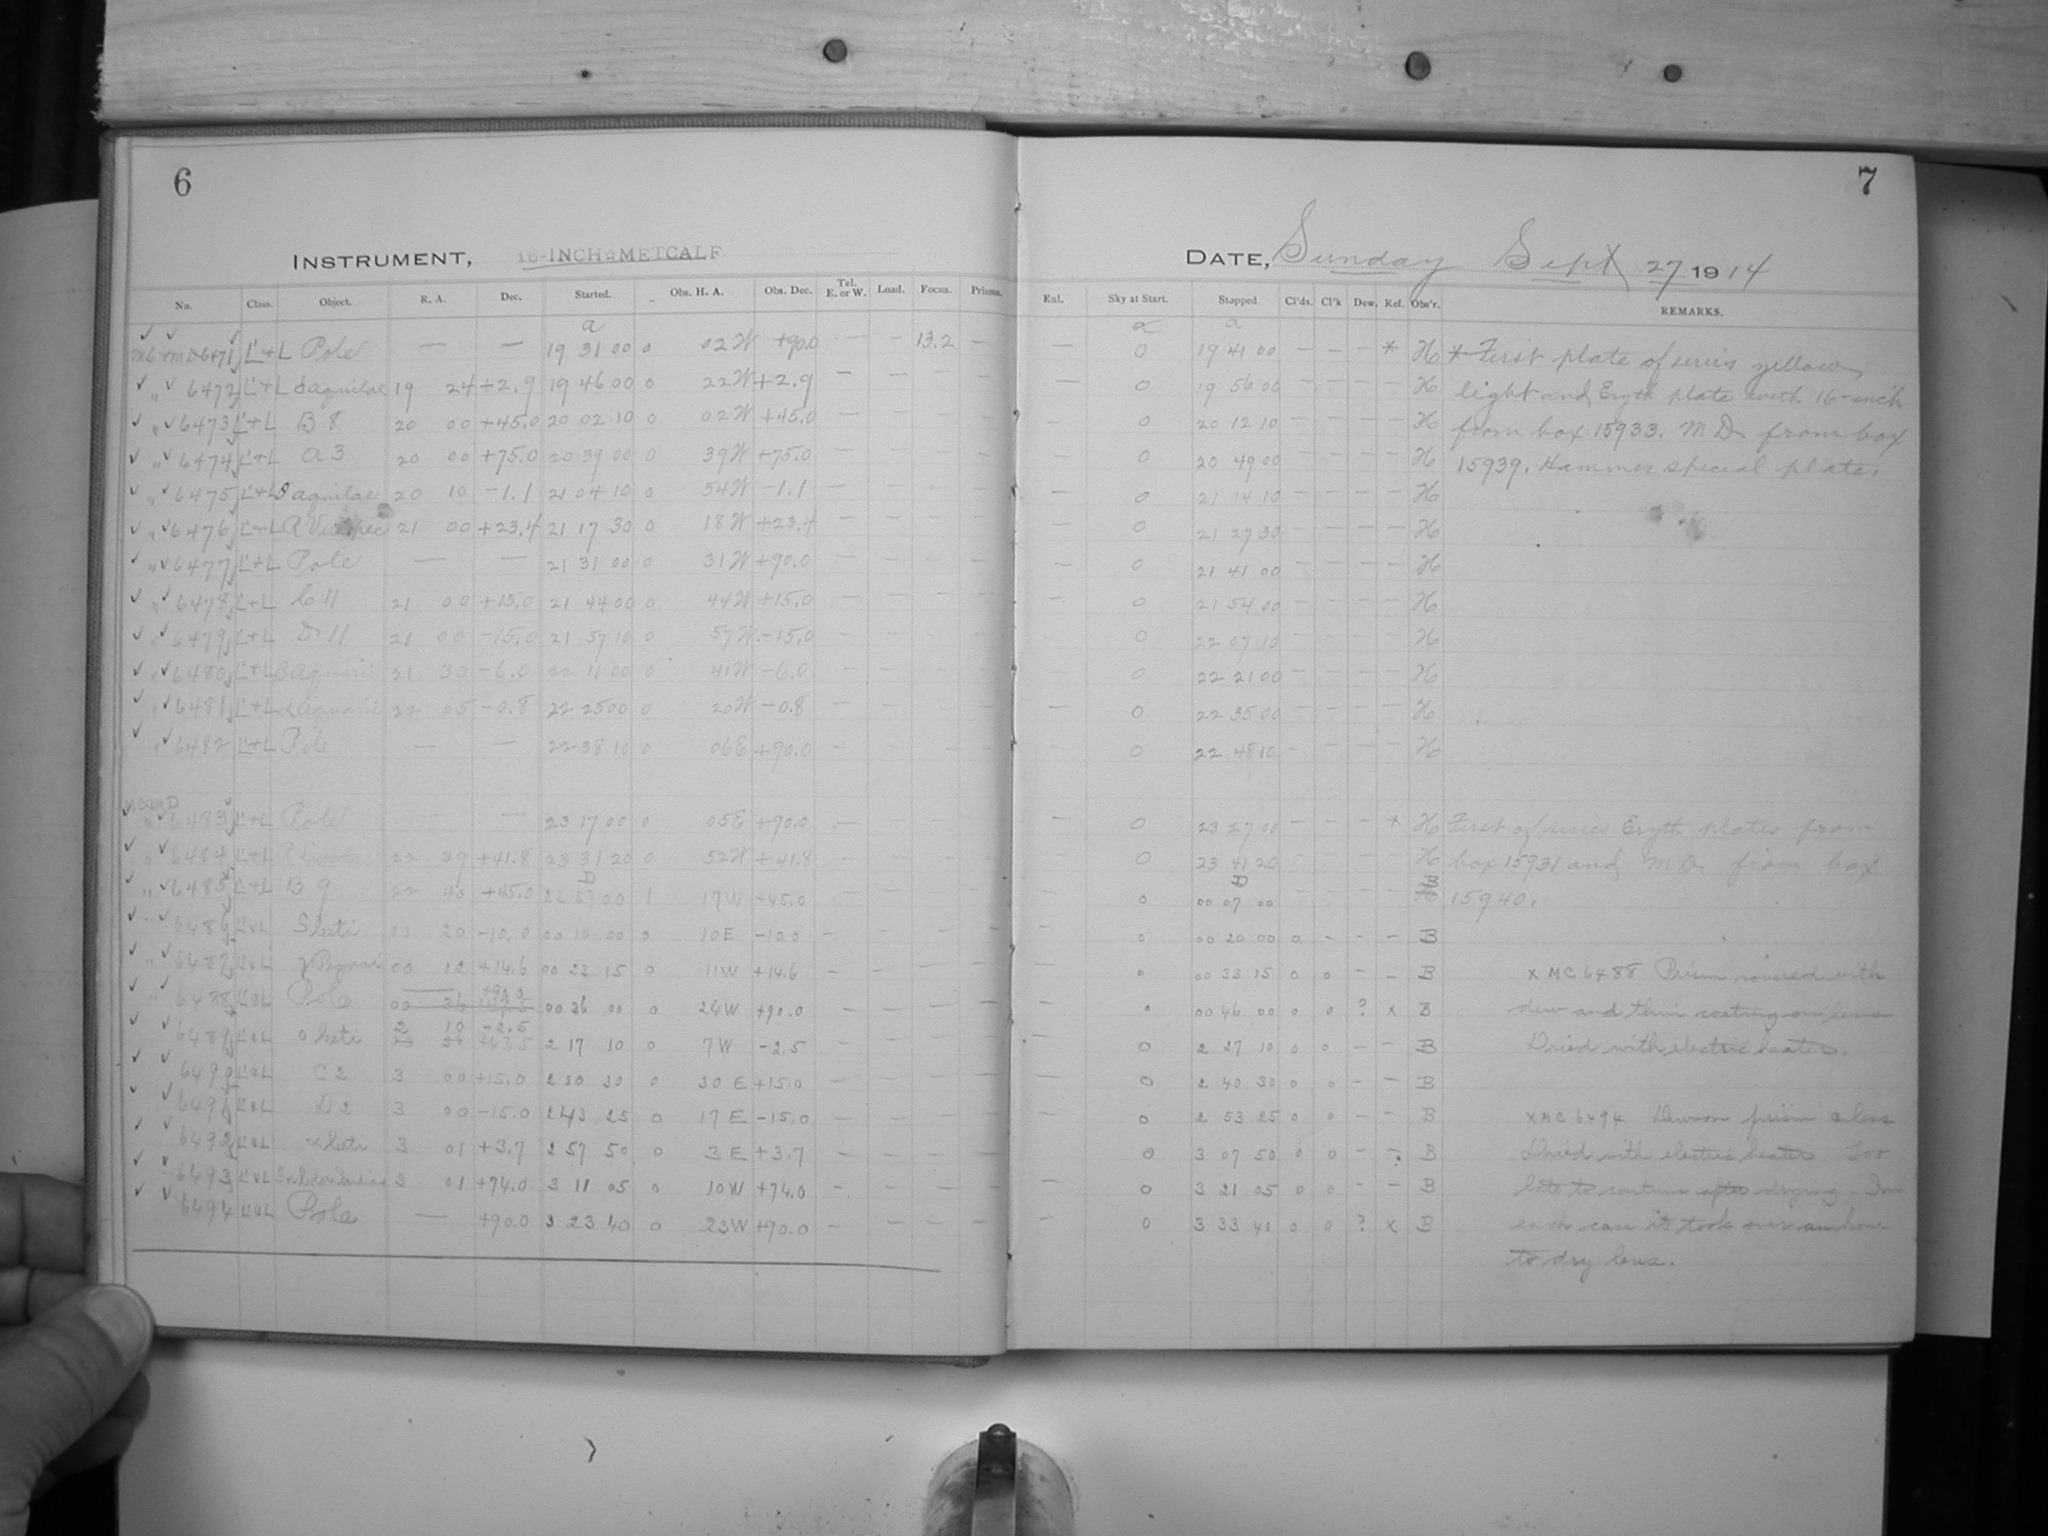 6
INSTRUMENT, 16-INCH METCALF
No. Class. Object. R. A. Dec. Started. Obs. H. A. Obs. Dec. Tel. E. or W. Load. Focus. Prisms.
6471 L+L Pole — — 19 31 00 0 02 W +90.0 — — 13.2 —
" 6472 L+L δ aquilae 19 24 +2.9 19 46 00 0 22 W +2.9 — — — —
" 6473 L+L B 8 20 00 +45.0 20 02 10 0 02 W +45.0 — — — —
" 6474 L+L A 3 20 00 +75.0 20 39 00 0 39 W +75.0 — — — —
" 6475 L+L θ aquilae 20 10 -1.1 21 04 10 0 54 W -1.1 — — — —
" 6476 L+L 21 00 +23.4 21 17 30 0 18 W +23.4 — — — —
" 6477 L+L Pole — — 21 31 00 0 31 W +90.0 — — — —
" 6478 L+L C 11 21 00 +15.0 21 44 00 0 44 W +15.0 — — — —
" 6479 L+L D 11 21 00 -15.0 21 57 10 0 57 W -15.0 — — — —
" 6480 L+L β aquarii 21 30 -6.0 22 11 00 0 41 W -6.0 — — — —
" 6481 L+L α aquarii 22 05 -0.8 22 25 00 0 20 W -0.8 — — — —
" 6482 L+L Pole — — 22 38 10 0 06 E +90.0 — — — —
" 6483 L+L Pole — — 23 17 00 0 05 E +90.0 — — — —
" 6484 L+L 22 39 +41.8 23 31 20 0 52 W +41.8 — — — —
" 6485 L+L B 9 22 40 +45.0 23 57 00 1 17 W +45.0 — — — —
" 6486 L+L Ceti 00 20 -10.0 00 10 00 0 10 E -10.0 — — — —
" 6487 L+L γ Pegasi 00 12 +14.6 00 23 15 0 11 W +14.6 — — — —
" 6488 L+L Pole 00 36 +90.0 00 36 00 0 24 W +90.0 — — — —
6489 L+L o Ceti 2 10 -2.5 2 17 10 0 7 W -2.5 — — — —
6490 L+L C 2 3 00 +15.0 2 30 30 0 30 E +15.0 — — — —
6491 L+L D 2 3 00 -15.0 2 43 25 0 17 E -15.0 — — — —
6492 L+L α Ceti 3 01 +3.7 2 57 50 0 3 E +3.7 — — — —
6493 L+L 3 01 +74.0 3 11 05 0 10 W +74.0 — — — —
6494 L+L Pole — +90.0 3 23 40 0 23 W +90.0 — — — —
7
DATE, Sunday Sept 27 1914
Eul. Sky at Start. Stopped Cl'ds. Cl'k Dew. Ref. Obs'r. REMARKS.
— 0 19 41 00 — — — * H * First plate of series yellow
— 0 19 56 00 — — — — H light and Eryth plate with 16-inch
— 0 20 12 10 — — — — H from box 15933. M D. from box
— 0 20 49 00 — — — — H 15939. Hammer special plate.
— 0 21 14 10 — — — — H
— 0 21 27 30 — — — — H
— 0 21 41 00 — — — — H
— 0 21 54 00 — — — — H
— 0 22 07 10 — — — — H
— 0 22 21 00 — — — — H
— 0 22 35 00 — — — — H
— 0 22 48 10 — — — — H
— 0 23 27 00 — — — * H First of series Eryth plates from
— 0 23 41 20 — — — — H box 15931 and M D. from box
— 0 00 07 00 — — — — B 15940.
— 0 00 20 00 0 — — — B
— 0 00 33 15 0 0 — — B x MC 6488 Prism covered with
— 0 00 46 00 0 0 ? x B dew and thin coating on lens
— 0 2 27 10 0 0 — — B Dried with electric heater.
— 0 2 40 30 0 0 — — B
— 0 2 53 25 0 0 — — B x MC 6494 Dew on prism & lens
— 0 3 07 50 0 0 — — B Dried with electric heater Too
— 0 3 21 05 0 0 — — B late to continue after drying. In
— 0 3 33 40 0 0 ? x B each case it took over an hour
to dry lens.